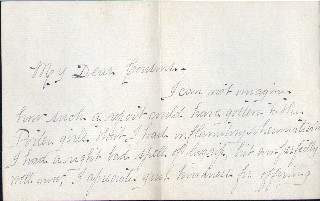 My Dear Cousin -
I can not imagine
how such a report could have gotten to the
girls that I had inflammatory rheumatism
I had a right bad spell of but am perfectly
well now, I appreciate your kindness for offering